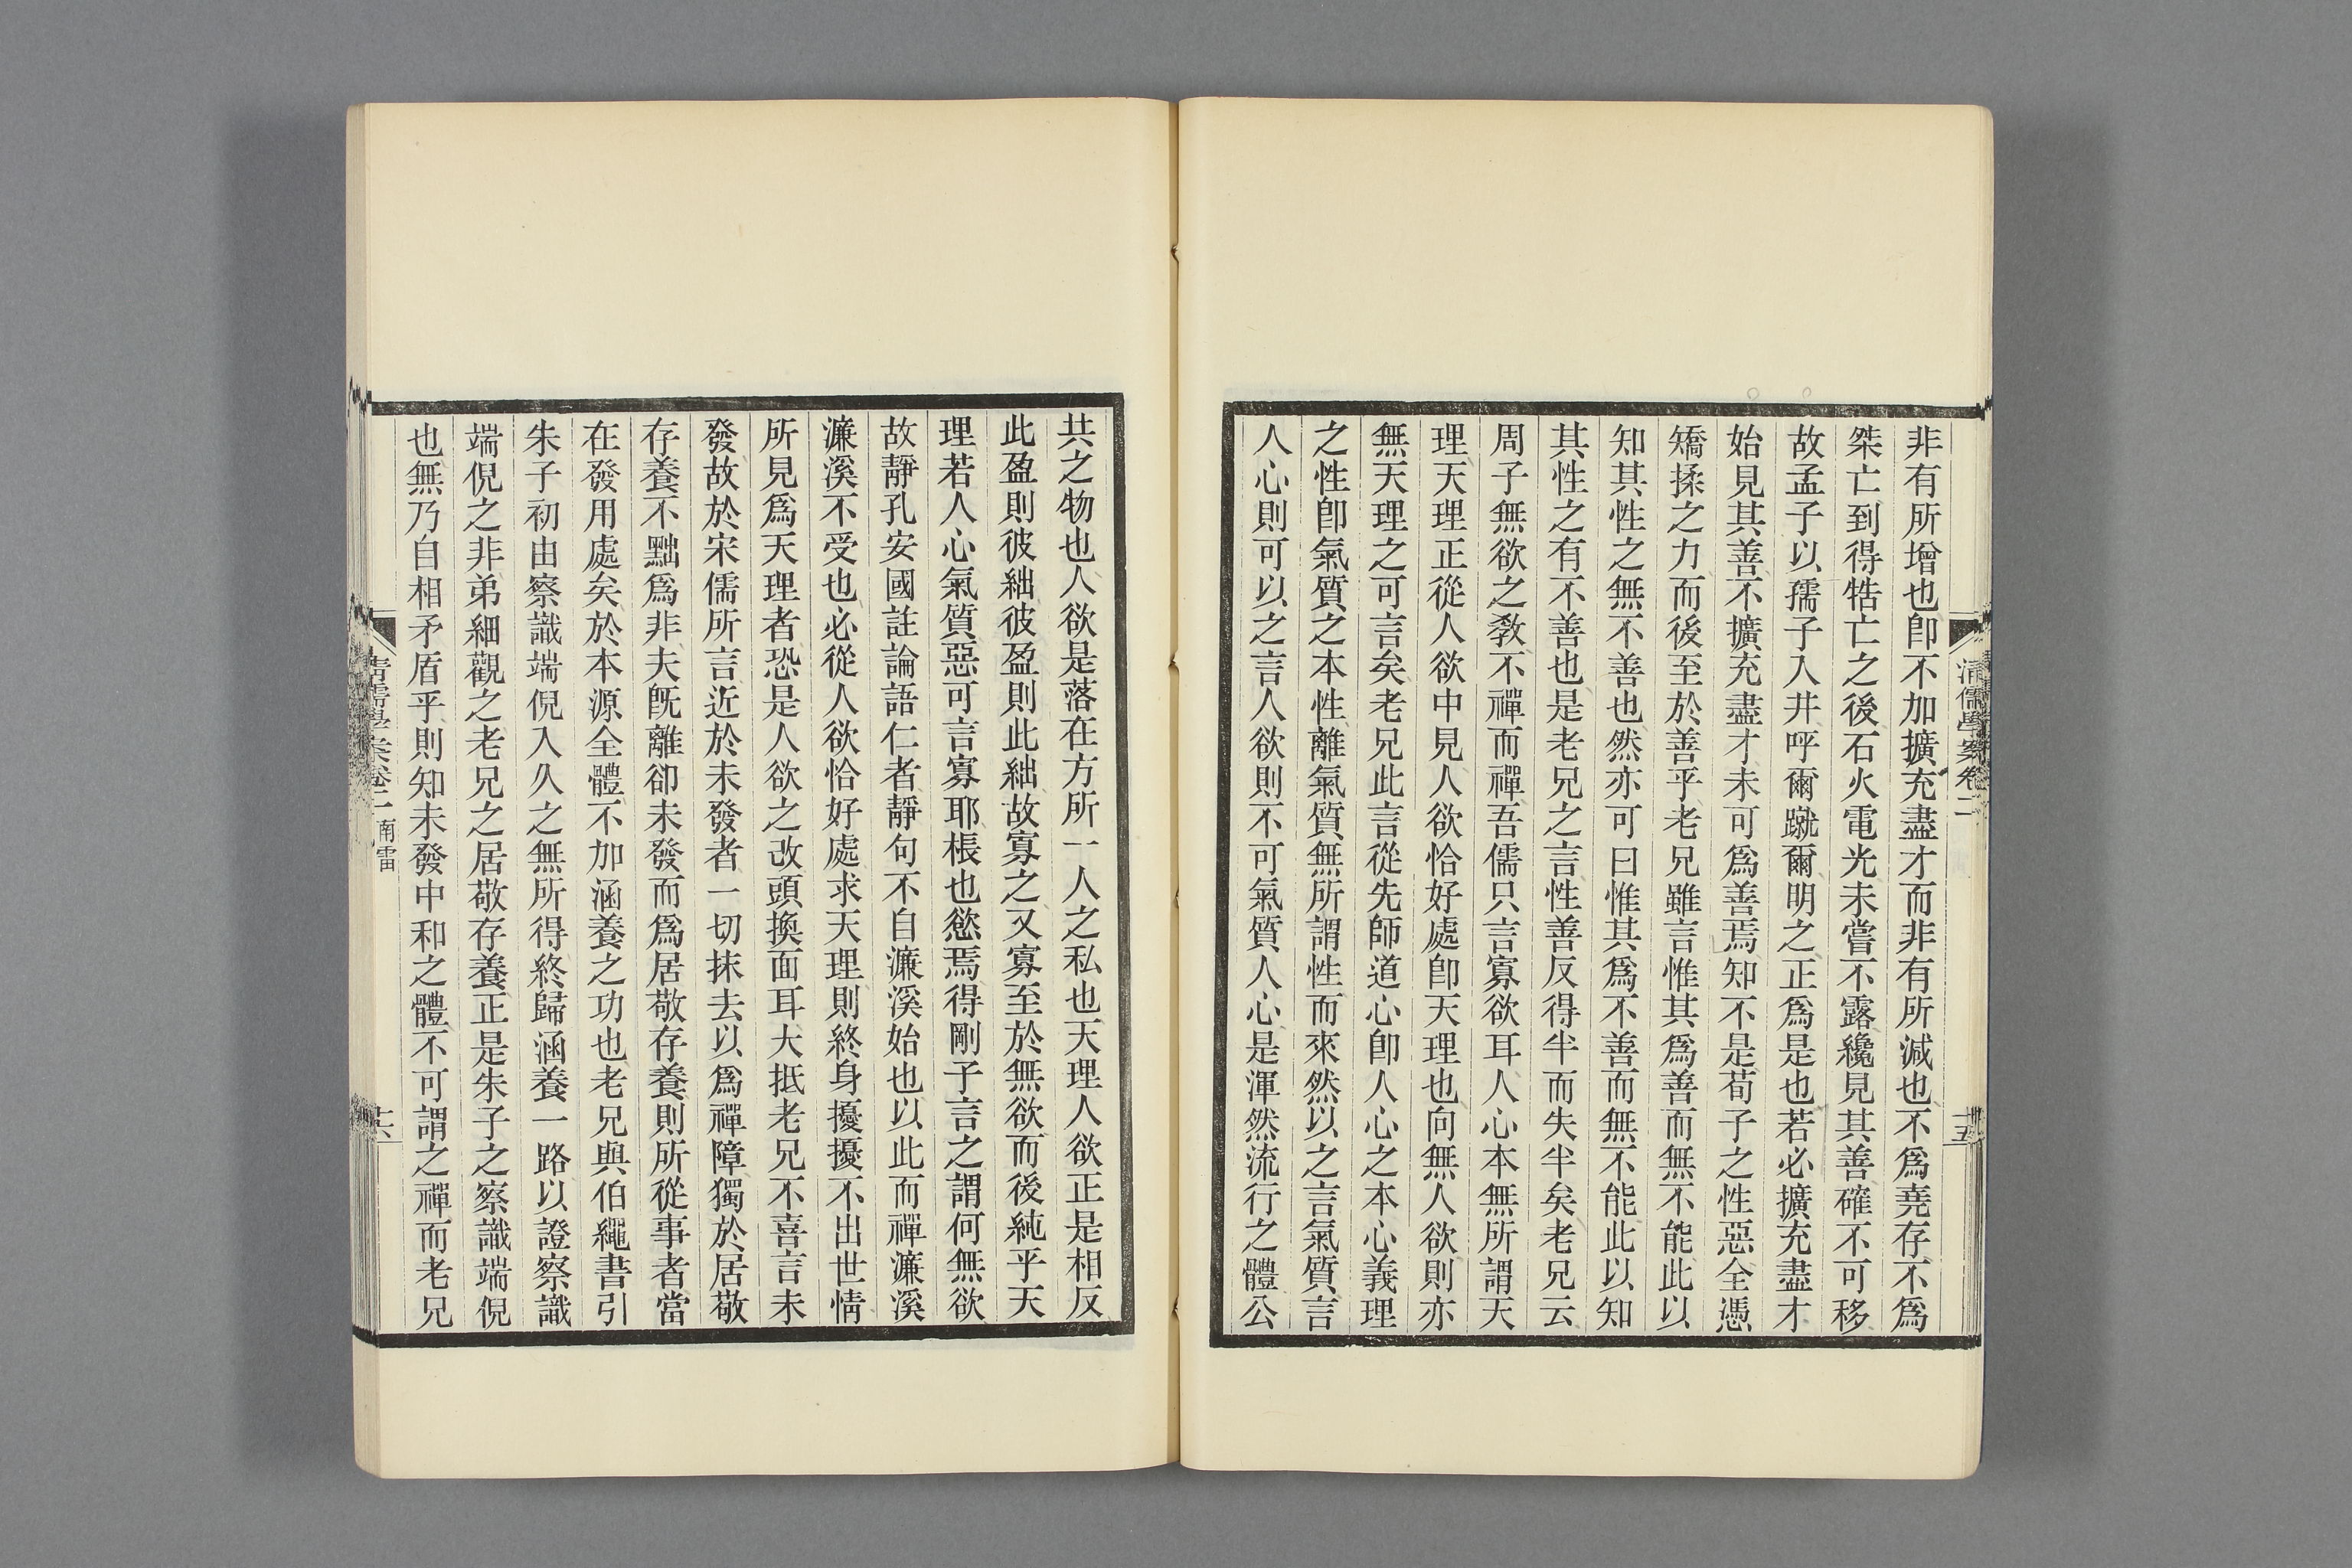 清儒學案卷二
十五
非有所增也卽不加擴充盡才而非有所減也不爲堯存不爲
桀亡到得牿亡之後石火電光未嘗不露纔見其善確不可移
故孟子以孺子入井呼爾蹴爾明之正爲是也若必擴充盡才
始見其善不擴充盡才未可爲善焉知不是荀子之性惡全憑
矯揉之力而後至於善乎老兄雖言惟其爲善而無不能此以
知其性之無不善也然亦可曰惟其爲不善而無不能此以知
其性之有不善也是老兄之言性善反得半而失半矣老兄云
周子無欲之敎不禪而禪吾儒只言寡欲耳人心本無所謂天
理天理正從人欲中見人欲恰好處卽天理也向無人欲則亦
無天理之可言矣老兄此言從先師道心卽人心之本心義理
之性卽氣質之本性離氣質無所謂性而來然以之言氣質言
人心則可以之言人欲則不可氣質人心是渾然流行之體公
共之物也人欲是落在方所一人之私也天理人欲正是相反
此盈則彼絀彼盈則此絀故寡之又寡至於無欲而後純乎天
理若人心氣質惡可言寡耶棖也慾焉得剛子言之謂何無欲
故靜孔安國註論語仁者靜句不自濂溪始也以此而禪濂溪
濂溪不受也必從人欲恰好處求天理則終身擾擾不出世情
所見爲天理者恐是人欲之改頭換面耳大抵老兄不喜言未
發故於宋儒所言近於未發者一切抹去以爲禪障獨於居敬
存養不黜爲非夫旣離卻未發而爲居敬存養則所從事者當
在發用處矣於本源全體不加涵養之功也老兄與伯繩書引
朱子初由察識端倪入久之無所得終歸涵養一路以證察識
端倪之非弟細觀之老兄之居敬存養正是朱子之察識端倪
也無乃自相矛盾乎則知未發中和之體不可謂之禪而老兄
清儒學案卷二 南雷
十六